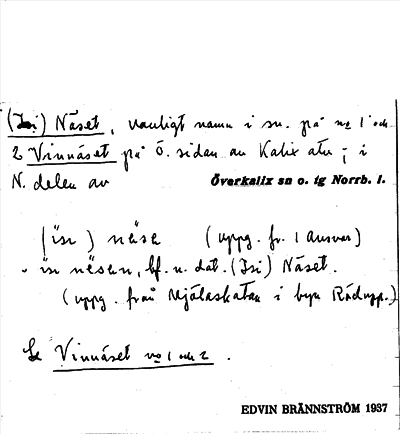 (Isi) Näset, vanligt namn i sn. på nr 1 och
2 Vinnäset på ö. sidan av Kalix älv; i
N. delen av Överkalix sn o. tg Norrb. l.
(ısı) näse (uppg. fr. Ansvar)
ısı nësen, bf. n. dat. (Isi) Näset.
(uppg. från Mjölaskatan i byn Rödupp.)
Se Vinnäset nr 1 och 2.
EDVIN BRÄNNSTRÖM 1937